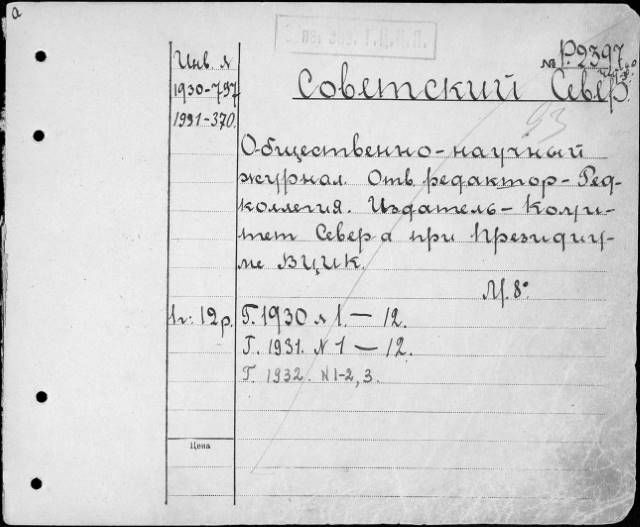 а
№ Р.2397
Инв. №
1930-797
1931-370.
Советский Север.
93
Общественно-научный
журнал. Отв. редактор-Ред-
коллегия. Издатель-Коми-
тет Севера при Президиу-
ме ВЦИК.
М. 8°
1 г: 12 р.
Г. 1930 № 1. — 12.
Г. 1931. N 1 — 12.
Г. 1932. N 1-2, 3.
Цена